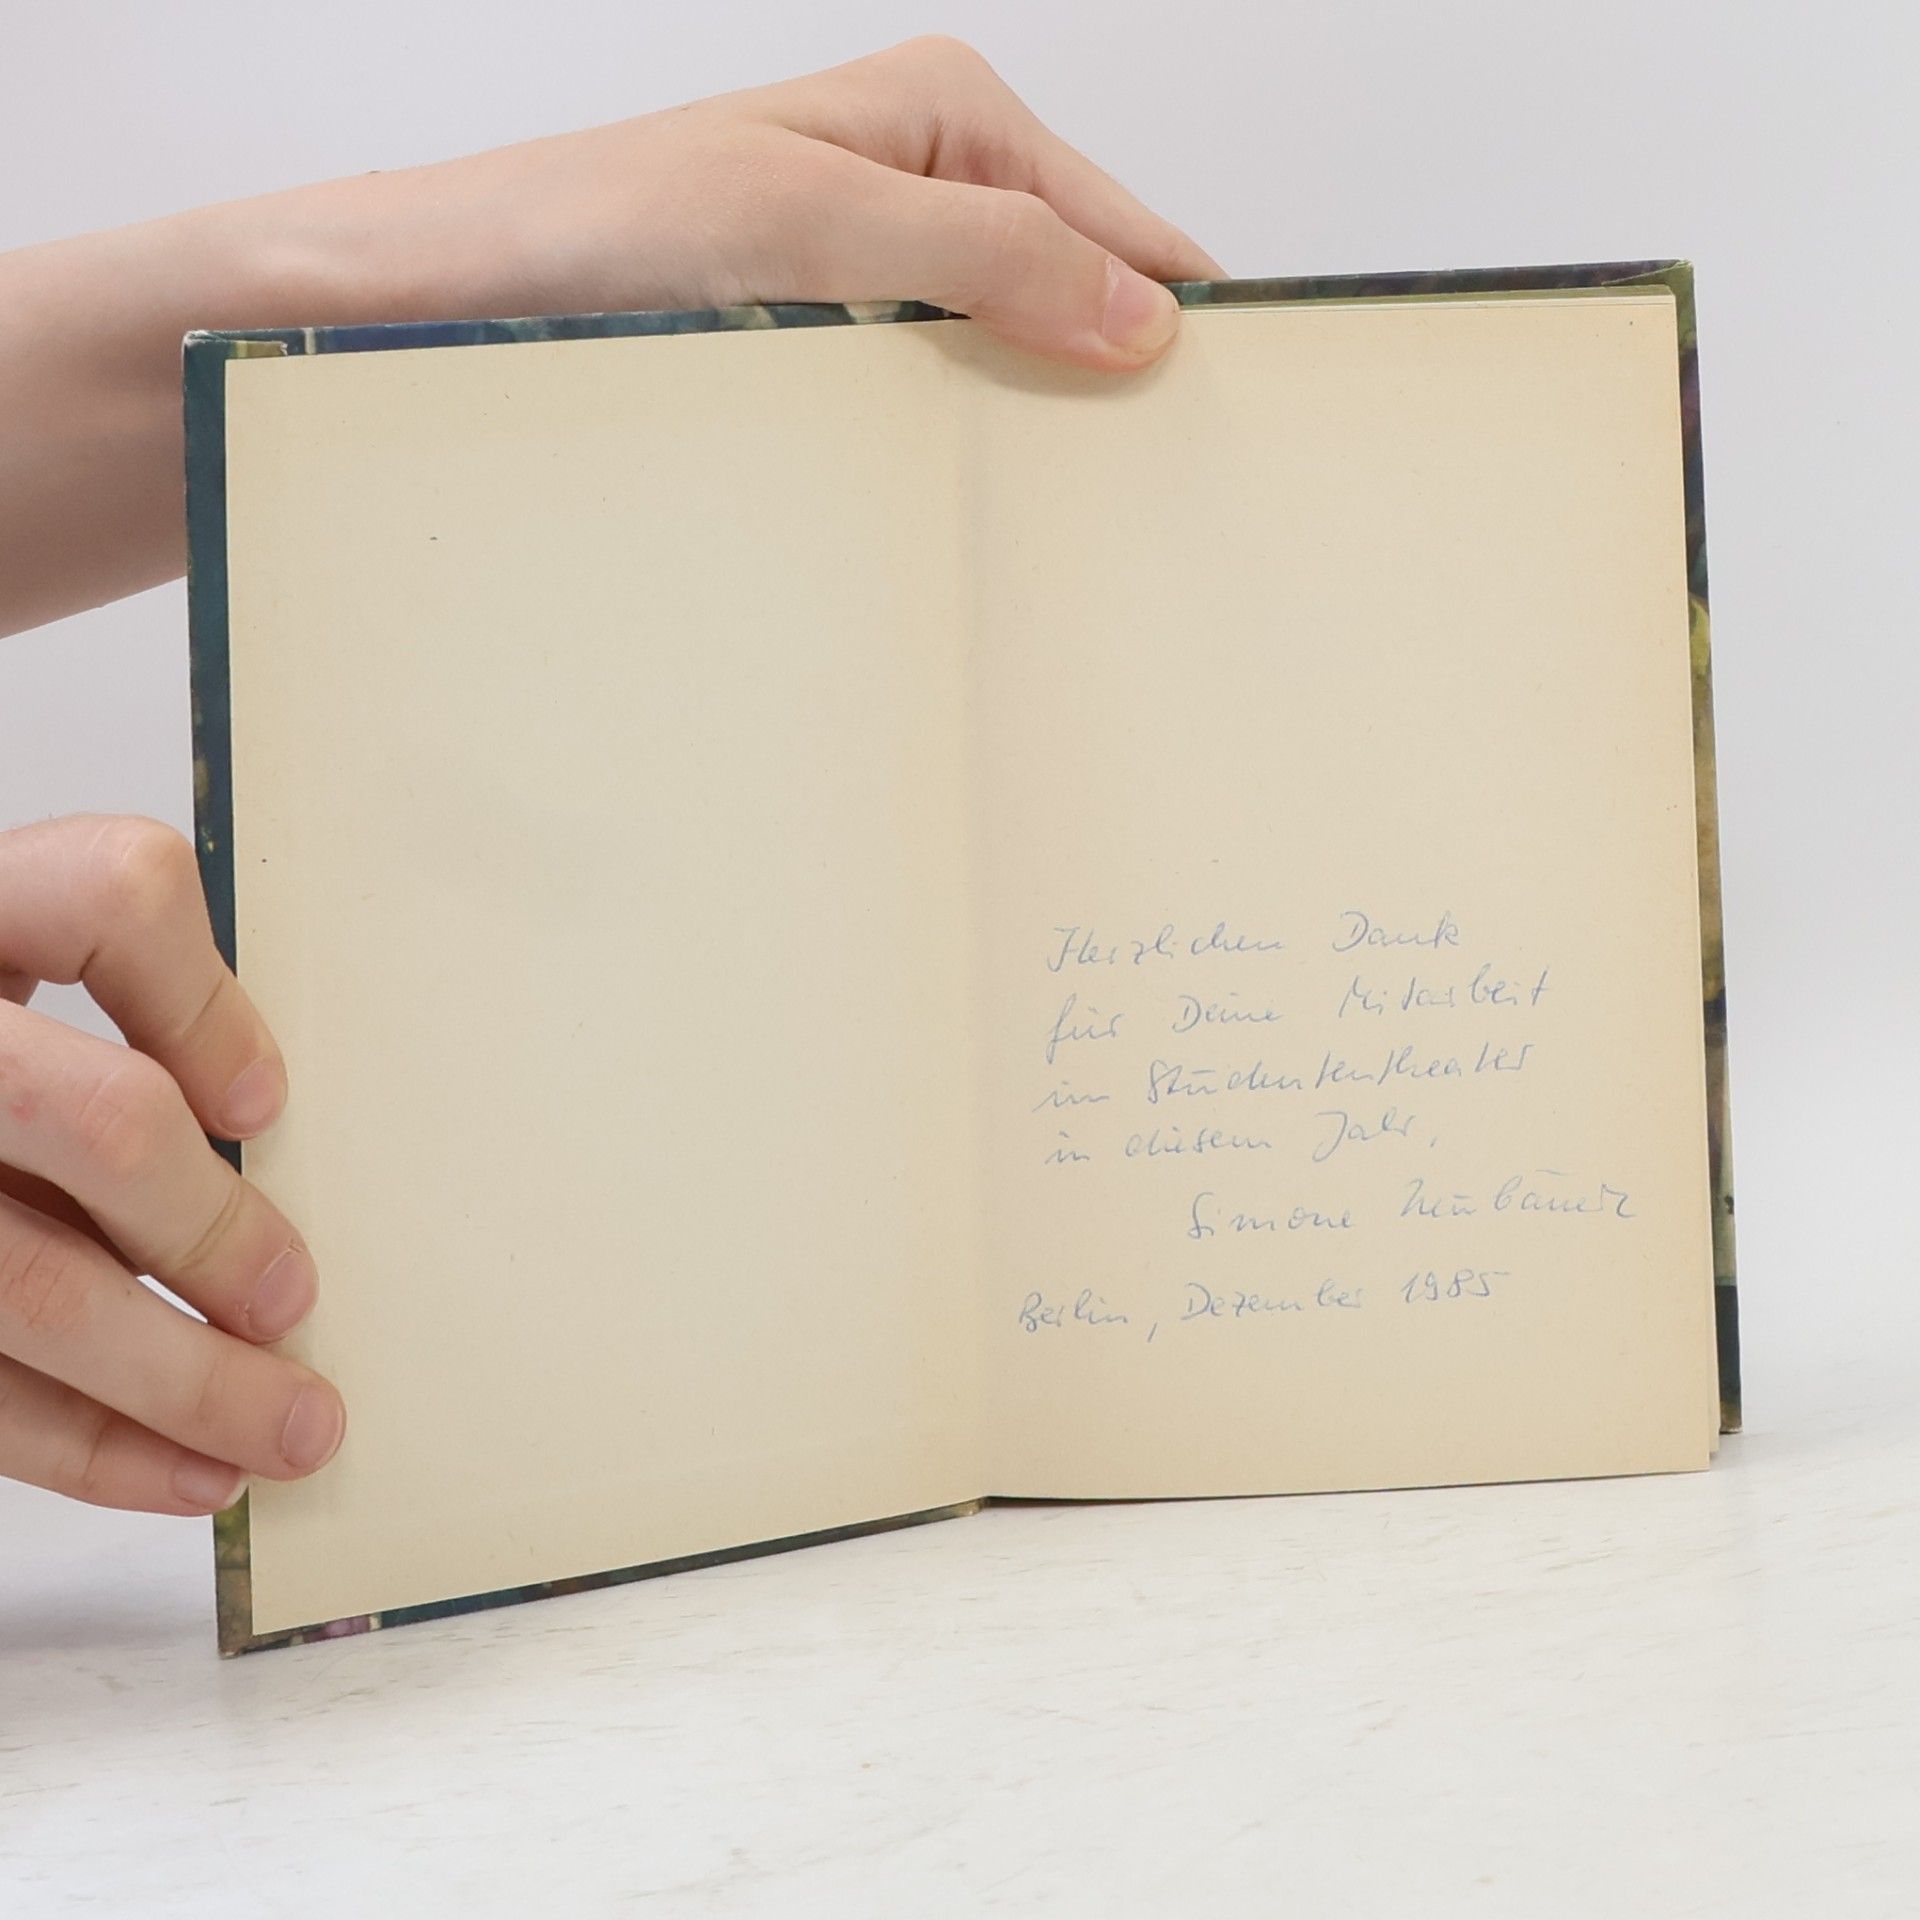 Herzlichen Dank
für Deine Mitarbeit
im Studententheater
in diesem Jahr,
Simone Neubauer
Berlin, Dezember 1985